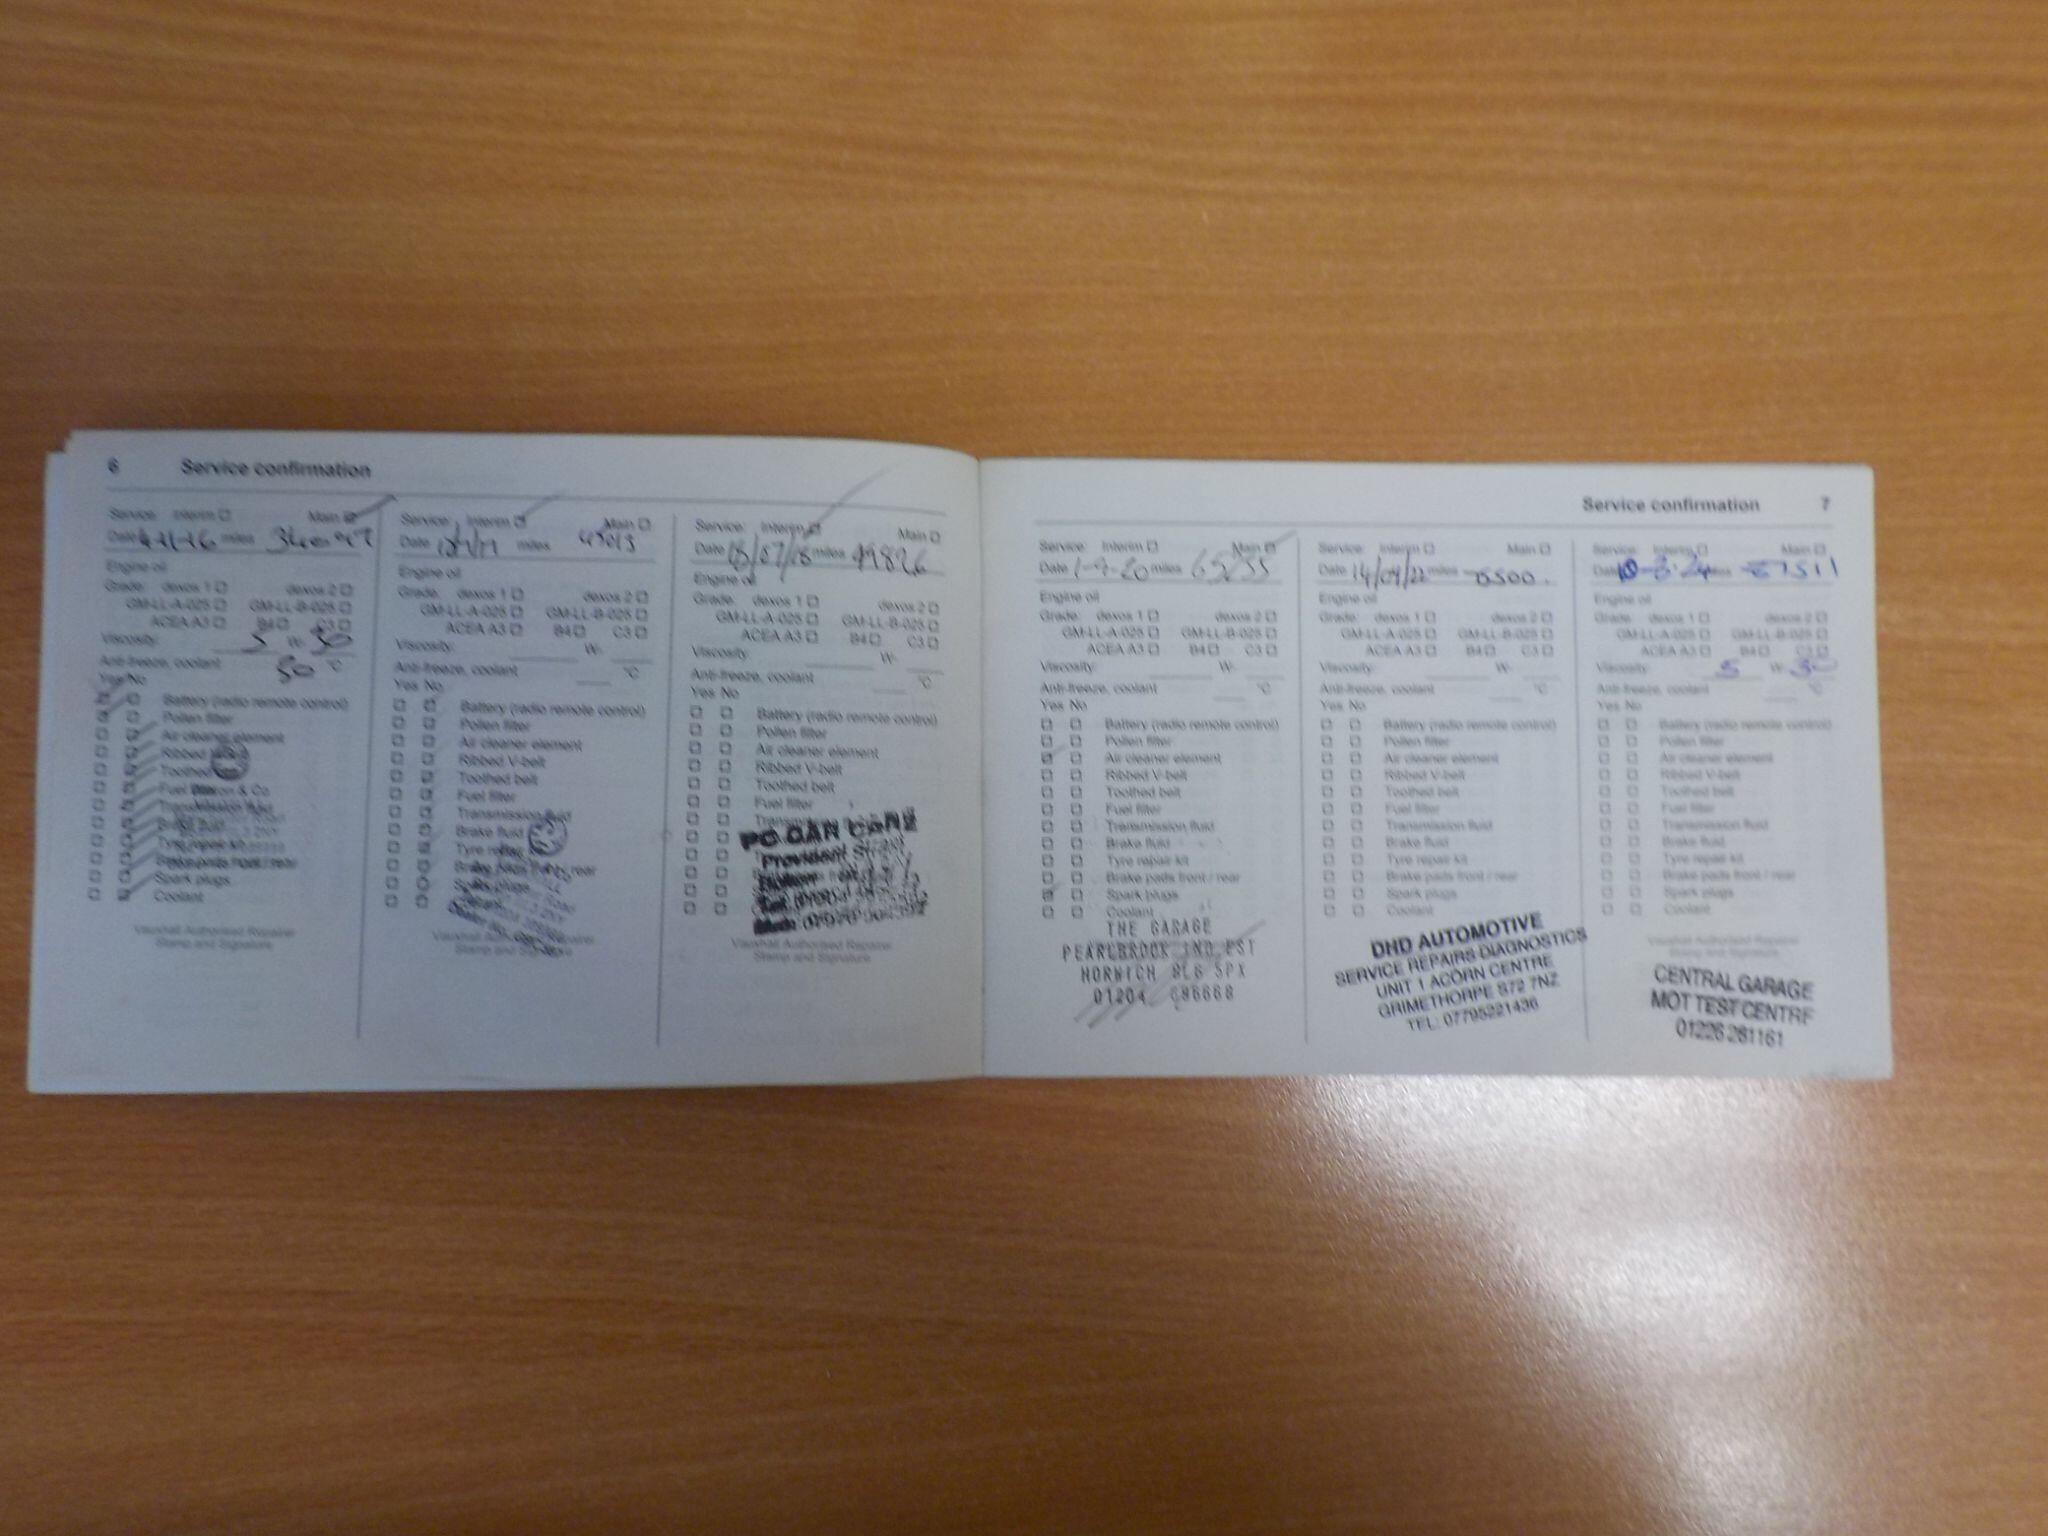 6 Service confirmation
Service: Interim Main
Date 4-11-16 miles
Engine oil
Grade: dexos 1 dexos 2
GM-LL-A-025 GM-LL-B-025
ACEA A3 B4 C3
Viscosity: 5 W- 30
Anti-freeze, coolant 50 °C
Yes No
Battery (radio remote control)
Pollen filter
Air cleaner element
Ribbed
Toothed
Fuel & Co
Transmission fluid
Brake fluid
Tyre repair kit
Brake pads front / rear
Spark plugs
Coolant
Vauxhall Authorised Repairer
Stamp and Signature
Service: Interim Main
Date miles
Engine oil
Grade: dexos 1 dexos 2
GM-LL-A-025 GM-LL-B-025
ACEA A3 B4 C3
Viscosity: W-
Anti-freeze, coolant °C
Yes No
Battery (radio remote control)
Pollen filter
Air cleaner element
Ribbed V-belt
Toothed belt
Fuel filter
Transmission fluid
Brake fluid
Tyre
rear
Spark plugs
Vauxhall Authorised Repairer
Stamp and Signature
Service: Interim Main
Date 18/07/18 miles 49826
Engine oil
Grade: dexos 1 dexos 2
GM-LL-A-025 GM-LL-B-025
ACEA A3 B4 C3
Viscosity: W-
Anti-freeze, coolant °C
Yes No
Battery (radio remote control)
Pollen filter
Air cleaner element
Ribbed V-belt
Toothed belt
Fuel filter
PC CAR CARE
Provident
Vauxhall Authorised Repairer
Stamp and Signature
Service confirmation 7
Service: Interim Main
Date 1-9-20 miles 65255
Engine oil
Grade: dexos 1 dexos 2
GM-LL-A-025 GM-LL-B-025
ACEA A3 B4 C3
Viscosity: W-
Anti-freeze, coolant °C
Yes No
Battery (radio remote control)
Pollen filter
Air cleaner element
Ribbed V-belt
Toothed belt
Fuel filter
Transmission fluid
Brake fluid
Tyre repair kit
Brake pads front / rear
Spark plugs
Coolant
THE GARAGE
PEARLBROOK IND EST
HORWICH BL6 5PX
01204 696668
Service: Interim Main
Date 14/09/22 miles
Engine oil
Grade: dexos 1 dexos 2
GM-LL-A-025 GM-LL-B-025
ACEA A3 B4 C3
Viscosity: W-
Anti-freeze, coolant °C
Yes No
Battery (radio remote control)
Pollen filter
Air cleaner element
Ribbed V-belt
Toothed belt
Fuel filter
Transmission fluid
Brake fluid
Tyre repair kit
Brake pads front / rear
Spark plugs
Coolant
DHD AUTOMOTIVE
SERVICE REPAIRS DIAGNOSTICS
UNIT 1 ACORN CENTRE
GRIMETHORPE S72 7NZ
TEL: 07795221436
Service: Interim Main
Date miles
Engine oil
Grade: dexos 1 dexos 2
GM-LL-A-025 GM-LL-B-025
ACEA A3 B4 C3
Viscosity: 5 W- 30
Anti-freeze, coolant °C
Yes No
Battery (radio remote control)
Pollen filter
Air cleaner element
Ribbed V-belt
Toothed belt
Fuel filter
Transmission fluid
Brake fluid
Tyre repair kit
Brake pads front / rear
Spark plugs
Coolant
Vauxhall Authorised Repairer
Stamp and Signature
CENTRAL GARAGE
MOT TEST CENTRE
01226 281161